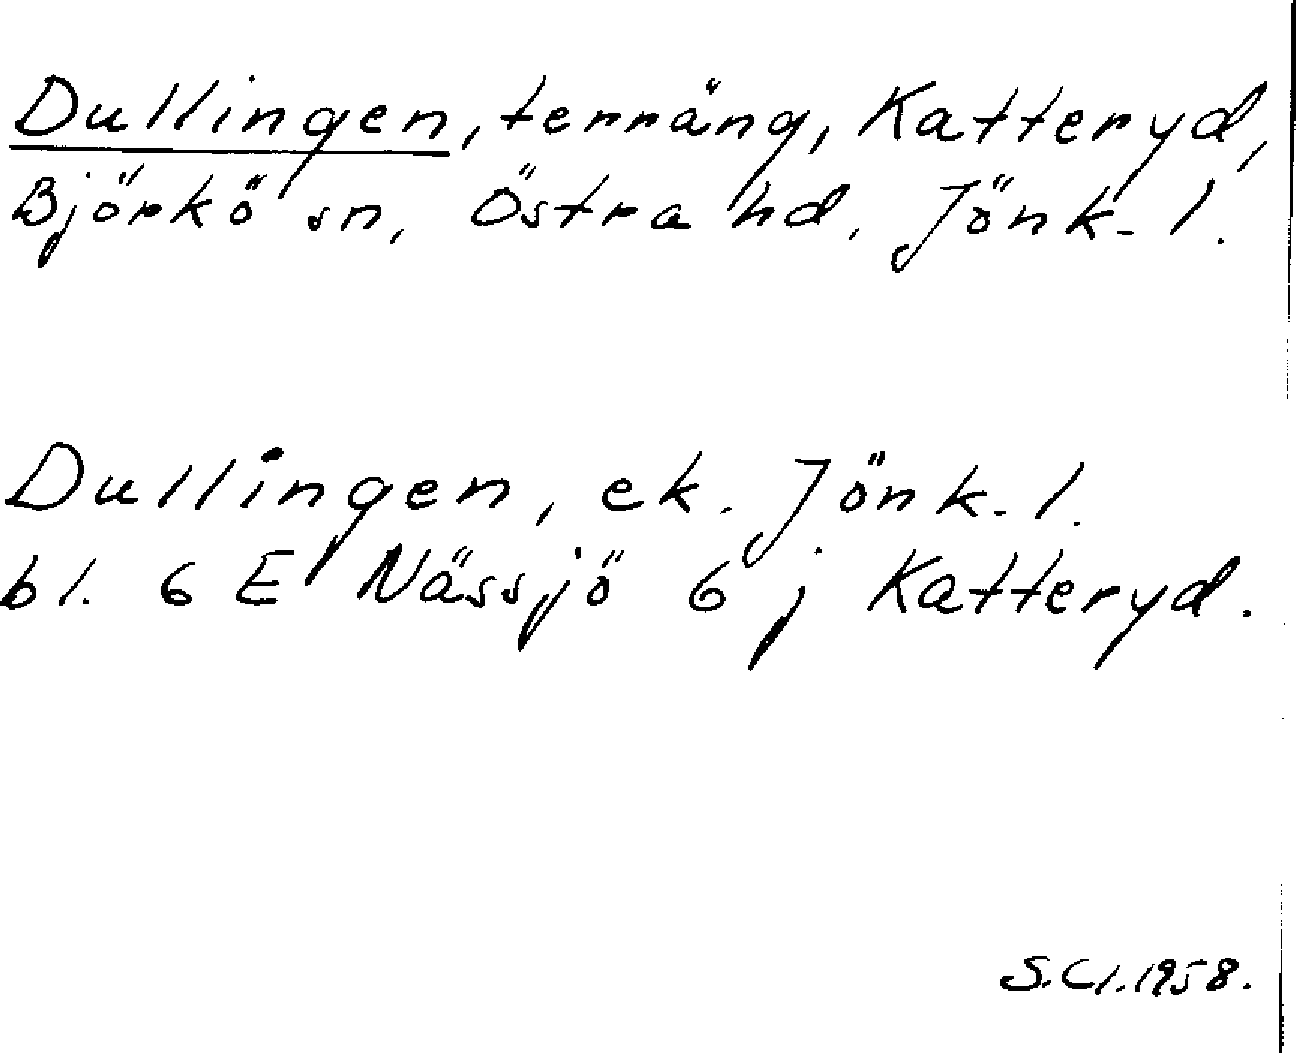 Dullingen, terräng, Katteryd,
Björkö sn, Östra hd, Jönk. l.
Dullingen, ek. Jönk. l.
bl. 6 E Nässjö 6 j Katteryd.
S. Cl. 1958.